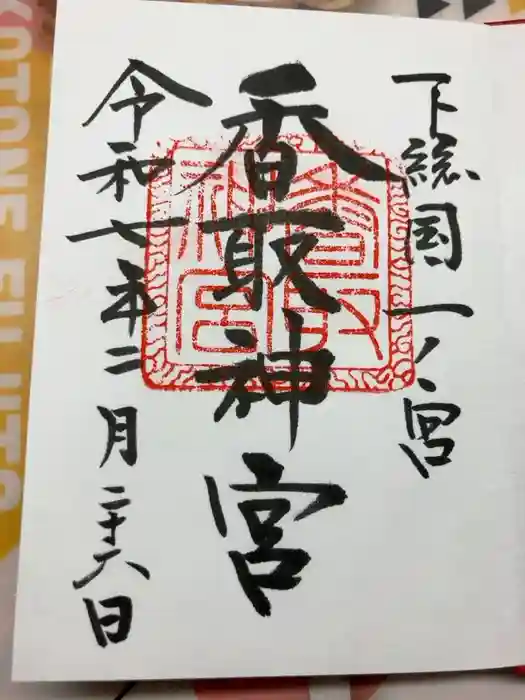 下総国一ノ宮
香取神宮
令和七年二月二十六日
香取神宮